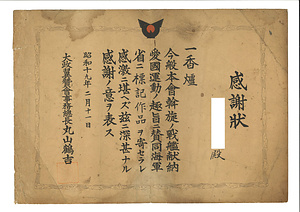 感謝狀
殿
一香爐
今般本會斡旋ノ戰艦献納
愛國運動ノ趣旨ニ贊同海軍
省ニ標記作品ヲ寄セラレ
感激ニ堪ヘズ茲ニ深甚ナル
感謝ノ意ヲ表ス
昭和十九年二月十一日
大政翼贊會事務總長丸山鶴吉